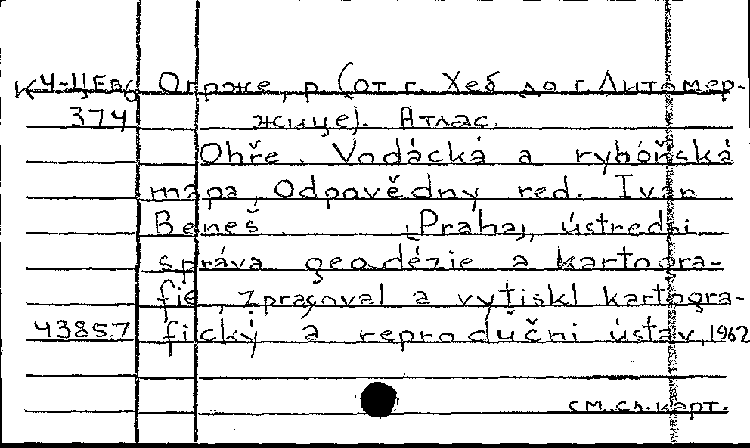 К4-ЦЕв6 Огрже, р. (от г. Хеб до г. Литомер-
374 жице). Атлас.
Ohře. Vodácká a rybářská
mapa. Odpovědny red. Ivan
Beneš. [Praha], ústredni
správa geodézie a kartogra-
fie, zpracoval a vytiskl kartogra-
43857 fický a reprodučni ústav, 1962
см. сл. карт.